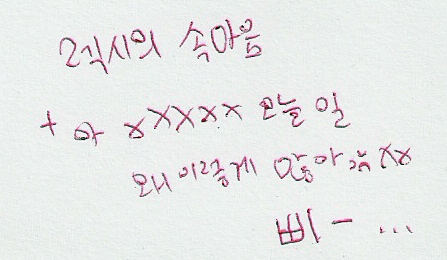 2섹시의 속마음
+ 아 xxxxx 오늘 일
왜 이렇게 많아 xx
삐 - ...